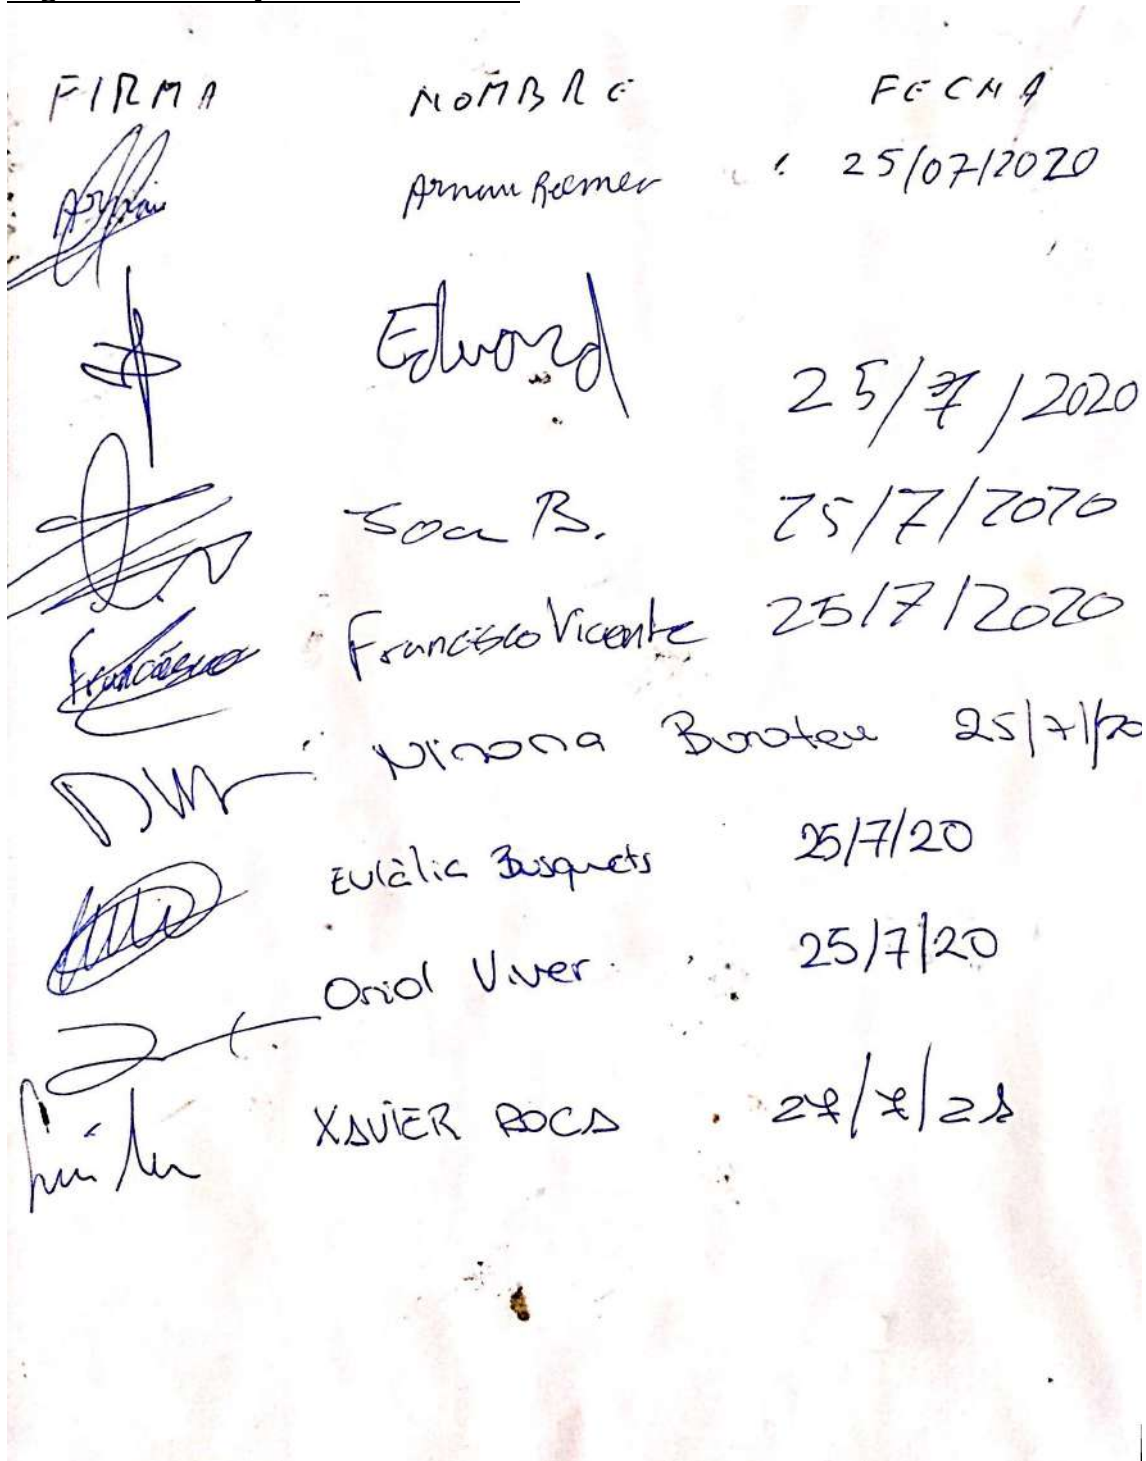 FIRMA NOMBRE FECHA
Arnau 25/07/2020
Eduard 25/7/2020
Joan B. 25/7/2020
Francisco Francisco Vicente 25/7/2020
25/7/20
Eulàlia Busquets 25/7/20
Oriol Viver 25/7/20
XAVIER ROCA 27/7/21